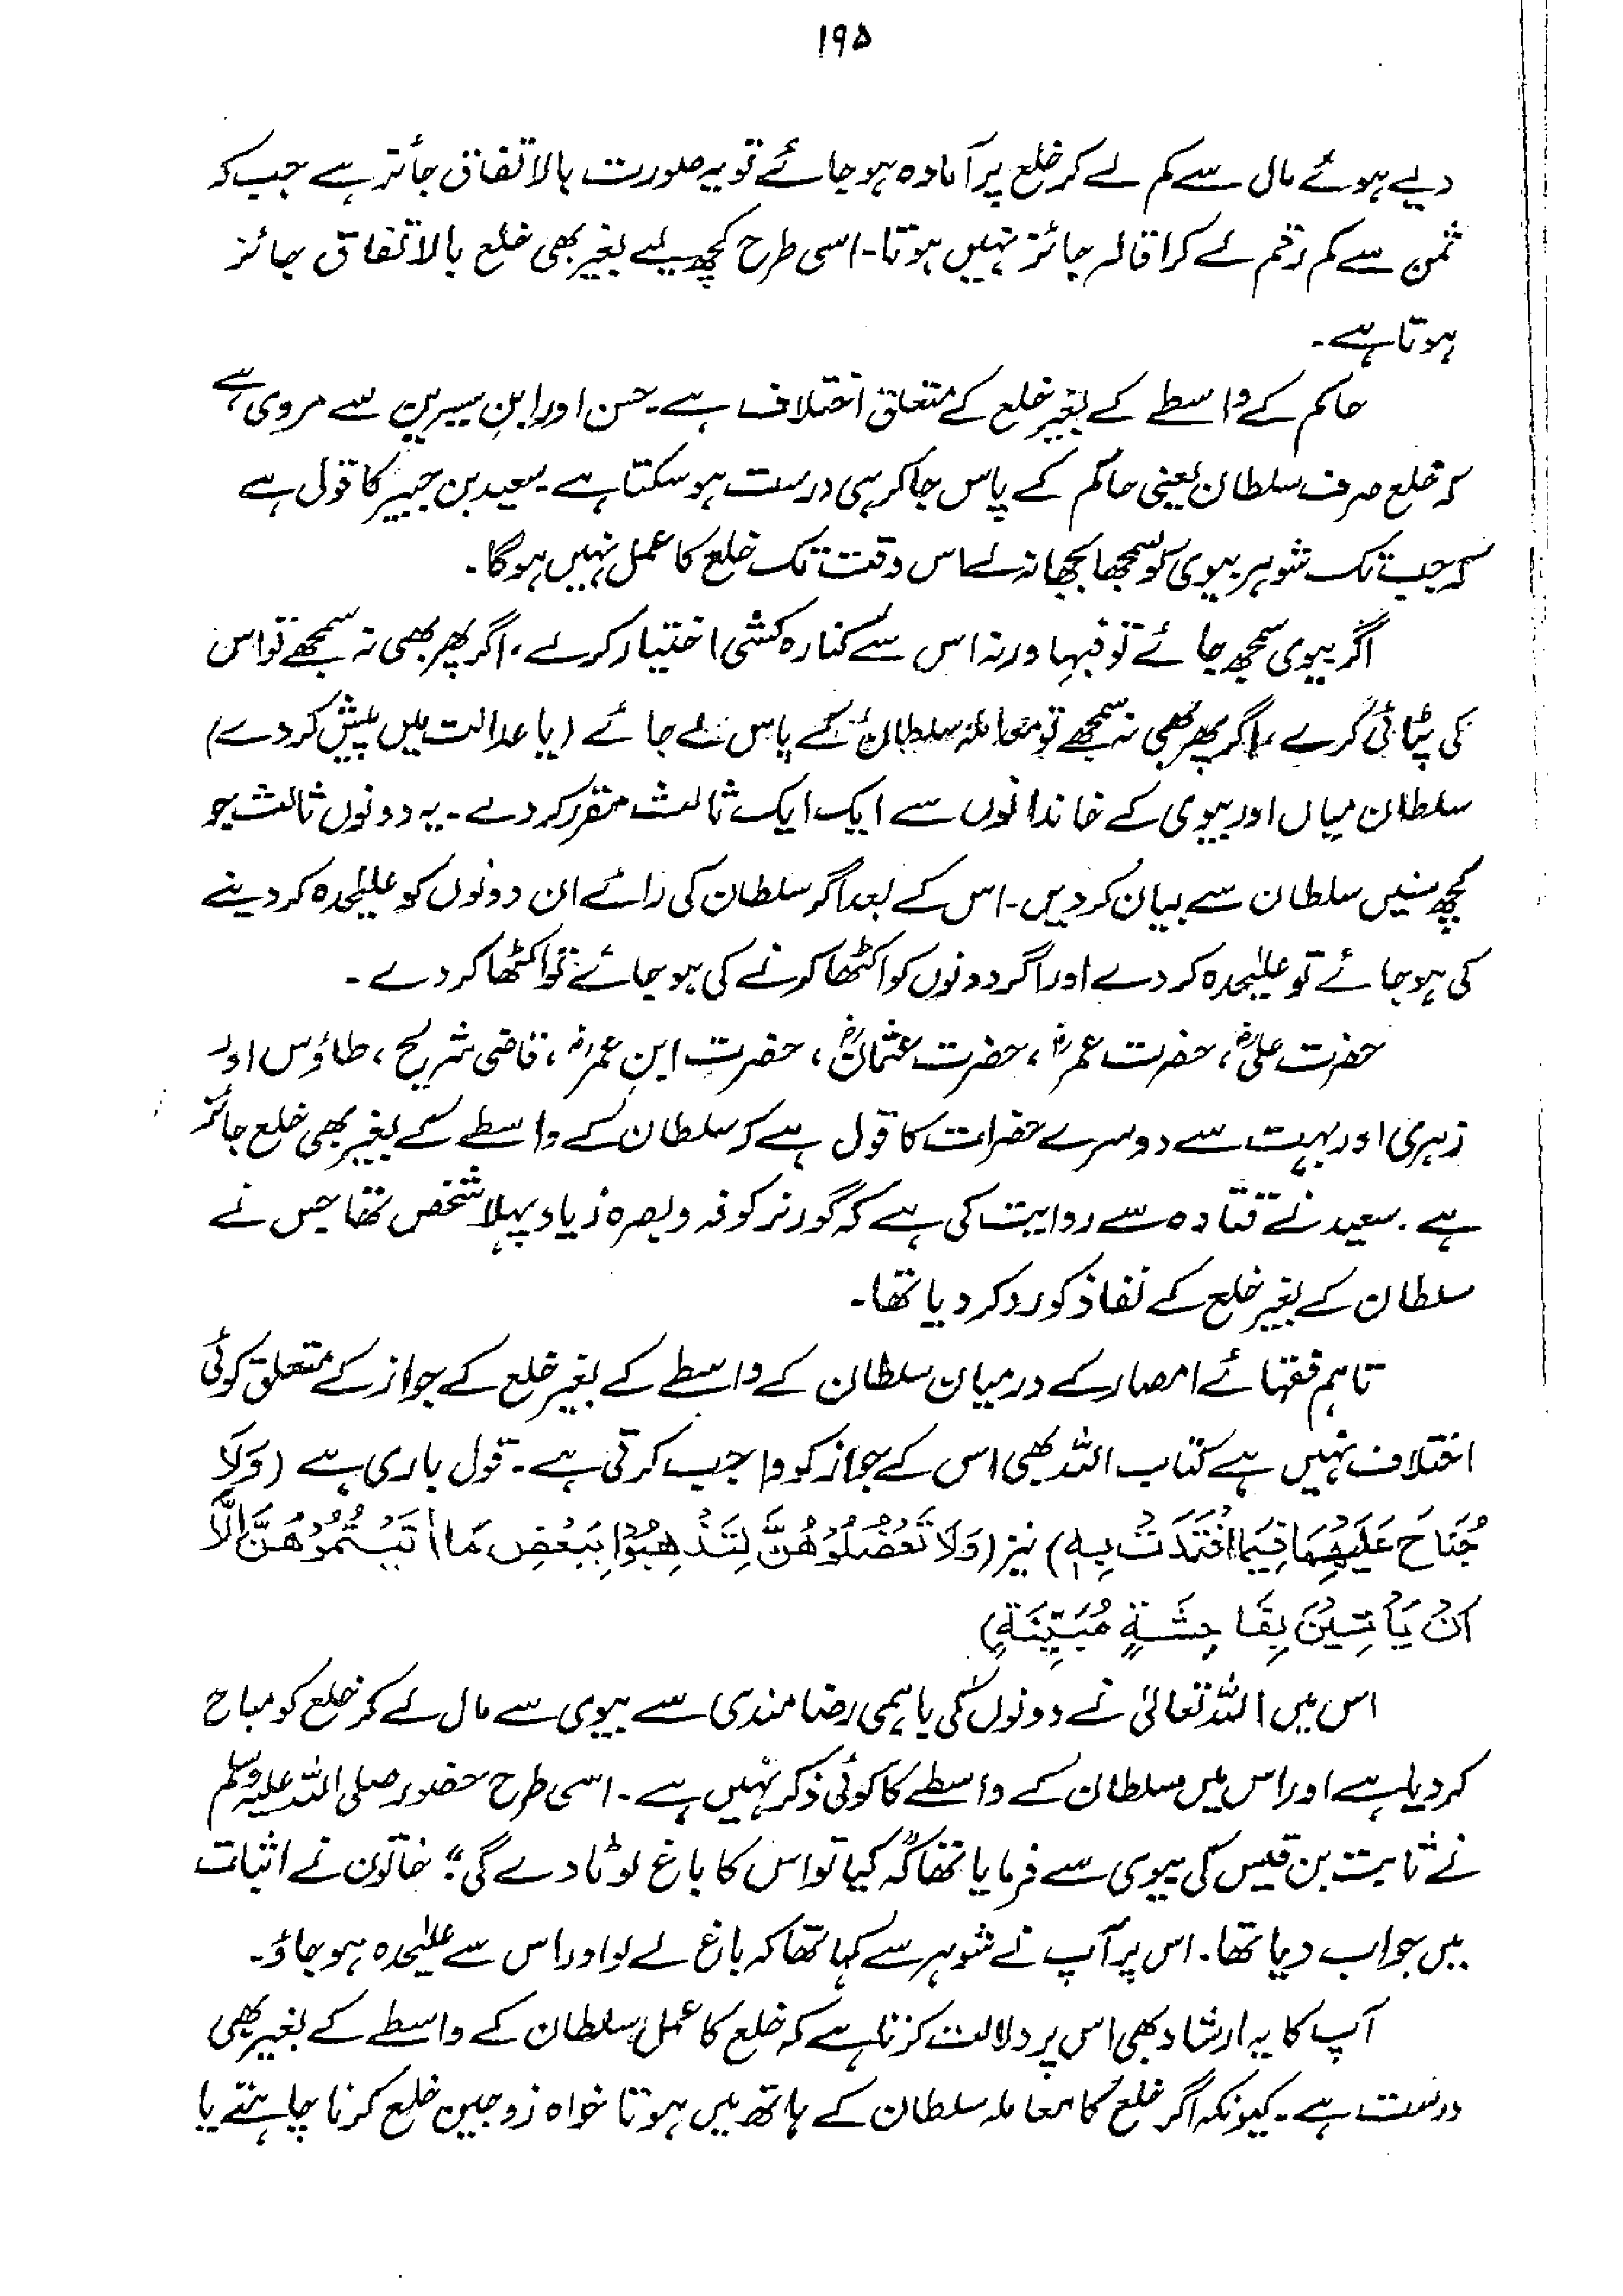 ۱۹۵
دیے ہوئے مال سے کم لے کر خلع پر آمادہ ہو جائے تو یہ صورت بالاتفاق جائز ہے جب کہ
ثمن سے کم رقم لے کر اقالہ جائز نہیں ہوتا۔ اسی طرح کچھ لیے بغیر بھی خلع بالاتفاق جائز
ہوتا ہے۔
حاکم کے واسطے کے بغیر خلع کے متعلق اختلاف ہے۔ حسن اور ابن سیرین سے مروی ہے
کہ خلع صرف سلطان یعنی حاکم کے پاس جا کر ہی درست ہو سکتا ہے۔ سعید بن جبیر کا قول ہے
کہ جب تک شوہر بیوی کو سمجھا بجھا نہ لے اس وقت تک خلع کا عمل نہیں ہوگا۔
اگر بیوی سمجھ جائے تو فبہا ورنہ اس سے کنارہ کشی اختیار کر لے، اگر پھر بھی نہ سمجھے تو اس
کی پٹائی کرے، اگر پھر بھی نہ سمجھے تو معاملہ سلطان کے پاس لے جائے (یا عدالت میں پیش کر دے)
سلطان میاں اور بیوی کے خاندانوں سے ایک ایک ثالث مقرر کر دے۔ یہ دونوں ثالث جو
کچھ سنیں سلطان سے بیان کر دیں۔ اس کے بعد اگر سلطان کی رائے ان دونوں کو علیٰحدہ کر دینے
کی ہو جائے تو علیٰحدہ کر دے اور اگر دونوں کو اکٹھا کرنے کی ہو جائے تو اکٹھا کر دے۔
حضرت علیؓ، حضرت عمرؓ، حضرت عثمانؓ، حضرت ابن عمرؓ، قاضی شریح، طاؤس اور
زہری اور بہت سے دوسرے حضرات کا قول ہے کہ سلطان کے واسطے کے بغیر بھی خلع جائز
ہے۔ سعید نے قتادہ سے روایت کی ہے کہ گورنر کوفہ و بصرہ زیاد پہلا شخص تھا جس نے
سلطان کے بغیر خلع کے نفاذ کو رد کر دیا تھا۔
تاہم فقہائے امصار کے درمیان سلطان کے واسطے کے بغیر خلع کے جواز کے متعلق کوئی
اختلاف نہیں ہے کتاب اللہ بھی اس کے جواز کو واجب کرتی ہے۔ قول باری ہے (وَلَا
جُنَاحَ عَلَيْهِمَا فِيمَا افْتَدَتْ بِهٖ) نیز (وَلَا تَعْضُلُوْهُنَّ لِتَذْهَبُوْا بِبَعْضِ مَا اٰتَيْتُمُوْهُنَّ اِلَّا
اَنْ يَاْتِيْنَ بِفَاحِشَةٍ مُبَيِّنَةٍ)
اس میں اللہ تعالیٰ نے دونوں کی باہمی رضامندی سے بیوی سے مال لے کر خلع کو مباح
کر دیا ہے اور اس میں سلطان کے واسطے کا کوئی ذکر نہیں ہے۔ اسی طرح حضور صلی اللہ علیہ وسلم
نے ثابت بن قیس کی بیوی سے فرمایا تھا کہ "کیا تو اس کا باغ لوٹا دے گی" خاتون نے اثبات
میں جواب دیا تھا۔ اس پر آپ نے شوہر سے کہا تھا کہ باغ لے لو اور اس سے علیٰحدہ ہو جاؤ۔
آپ کا یہ ارشاد بھی اس پر دلالت کرتا ہے کہ خلع کا عمل سلطان کے واسطے کے بغیر بھی
درست ہے۔ کیونکہ اگر خلع کا معاملہ سلطان کے ہاتھ میں ہوتا خواہ زوجین خلع کرنا چاہتے یا